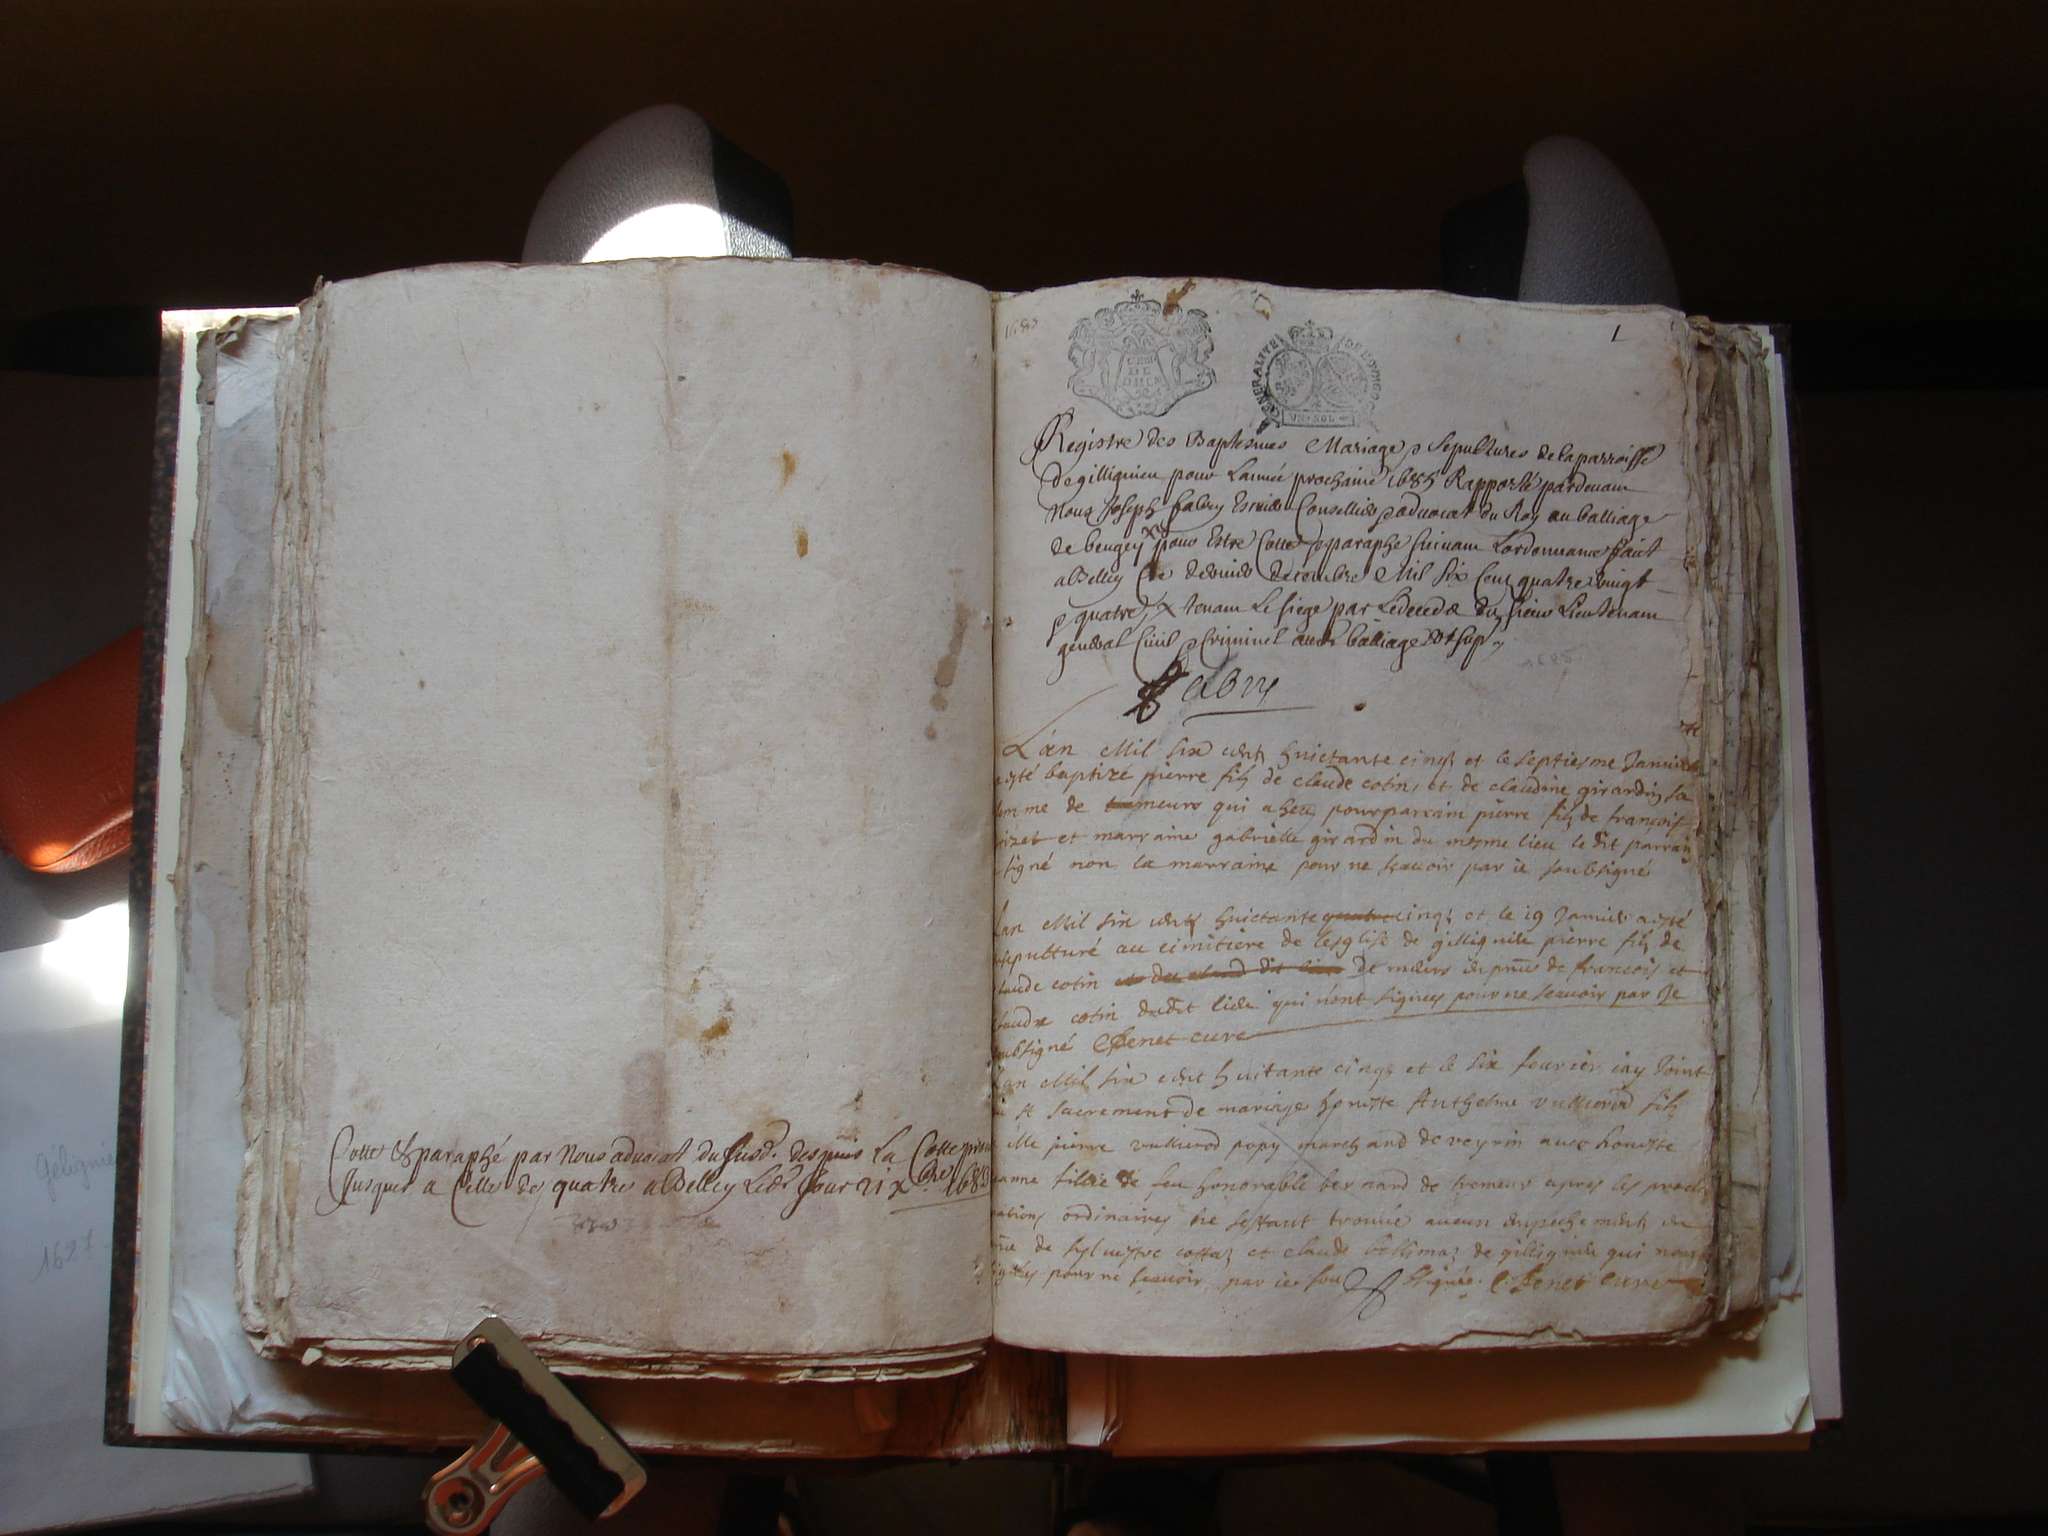 Cotté & paraphé par Nous advocat du Susd. despuis La Cotte
Jusques a Celle de quatre a Belley Led. Jour 21 xbre 168
1685
GENERALITE DE
UN SOL
1
Registre des Baptesmes Mariage & Sepultures de la parroisse
de gillignieu pour Lannée prochaine 1685 Rapporté pardevant
Nous Joseph fabry Escuier Conseiller & advocat du Roy au balliage
de beugey pour Estre Cotté & paraphé suivant Lordonnance fait
a Belley Ce decembre Mil Six Cent quatre vingt
& quatre tenant Le siege par Le deceds du sieur Lieutenant
general Civil & Criminel audt balliage
fabry
Lan Mil six cent huictante cinq et le septiesme Janvier
a esté baptizé pierre filz de claude cotin et de claudine girardin sa
femme de meurs qui a heu pour parrain pierre filz de françois
et marraine gabrielle girardin du mesme lieu le dit parrain
signé non la marraine pour ne sçavoir par ie soubsigné
Lan Mil six cent huictante quatre cinq et le 19 Janvier a esté
sepulturé au cimitiere de lesglise de gillignieu pierre filz de
claude cotin de en pnce de francois et
claude cotin dudit lieu qui nont signes pour ne scavoir par Je
soubsigné Genet cure
Lan Mil six cent huitante cinq et le six feurier iay Joint
st sacrement de mariage honeste Anthelme vullierod filz
pierre vullierod popy marchand de veyrin avec honeste
fillie de feu honorable bernard de tremeur apres les procla
mations ordinaires ne sestant trouvé aucun empechement en
de sylvestre cottaz et claude de gillignieu qui nont
signés pour ne scavoir par ie soubsigné Genet cure
Geligni
1687